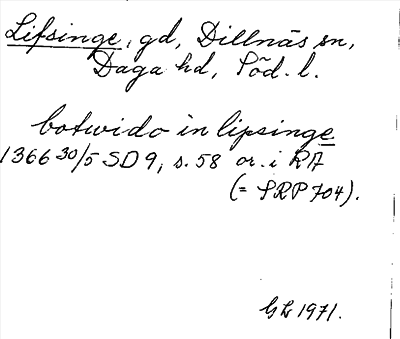 Lifsinge, gd, Dillnäs sn,
Daga hd, Söd. l.
botwido in lipsinge
1366 30/5 SD 9, s. 58 or. i RA
(= SRP 704).
1971.